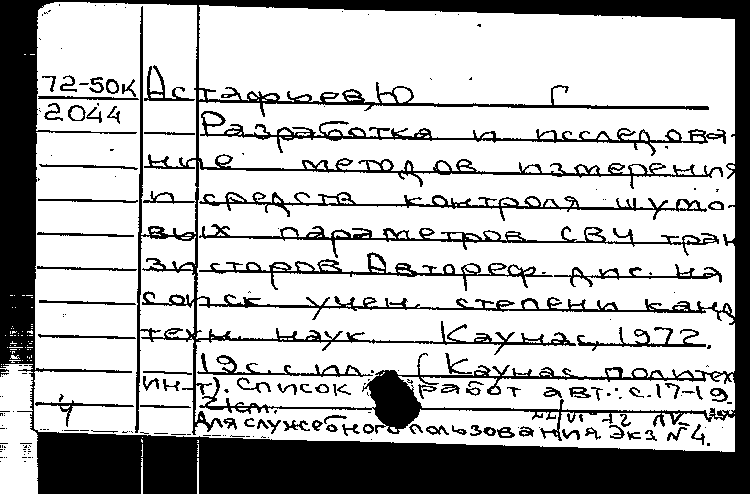 72-50к Астафьев, Ю Г
2044
Разработка и исследова-
ние методов измерения
и средств контроля шумо-
вых параметров СВЧ тран
зисторов. Автореф. дис. на
соиск учен. степени канд
техн. наук. Каунас, 1972.
19 с. с ил. (Каунас. политех
ин-т). Список работ авт.: с. 17-19
Для служебного пользования Экз №4.